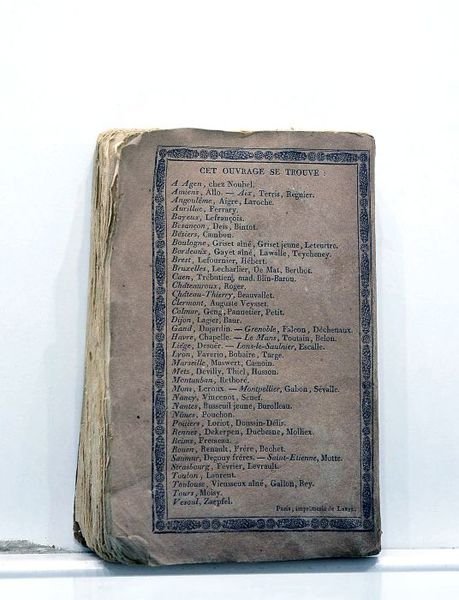 CET OUVRAGE SE TROUVE :
A Agen, chez Noubel.
Amiens, Allo. — Aix, Terris, Regnier.
Angoulême, Aigre, Laroche.
Aurillac, Ferrary.
Bayeux, Lefrançois.
Besançon, Deis, Bintot.
Béziers, Cambon.
Boulogne, Griset aîné, Griset jeune, Leteurtre.
Bordeaux, Gayet aîné, Lawalle, Teycheney.
Brest, Lefournier, Hébert.
Bruxelles, Lecharlier, De Mat, Berthot.
Caen, Trébutien, mad. Blin-Baron.
Châteauroux, Roger.
Château-Thierry, Beauvallet.
Clermont, Auguste Veysset.
Colmar, Geng, Pannetier, Petit.
Dijon, Lagier, Baur.
Gand, Dujardin. — Grenoble, Falcon, Déchenaux.
Havre, Chapelle. — Le Mans, Toutain, Belon.
Liége, Desoër. — Lons-le-Saulnier, Escalle.
Lyon, Faverio, Bobaire, Targe.
Marseille, Maswert, Camoin.
Metz, Devilly, Thiel, Husson.
Montauban, Rethoré.
Mons, Leroux. — Montpellier, Gabon, Sévalle.
Nancy, Vincenot, Senef.
Nantes, Busseuil jeune, Burolleau.
Nîmes, Pouchon.
Poitiers, Loriot, Doussin-Delis.
Rennes, Duchesne, Molliex.
Reims,
Rouen, Renault, Frère, Bechet.
Saumur, Degouy frères. — Saint-Etienne, Motte.
Strasbourg, Février, Levrault.
Toulon, Laurent.
Toulouse, Vieusseux aîné, Gallon, Rey.
Tours, Moisy.
Vesoul, Zaepfel.
Paris, imprimerie de